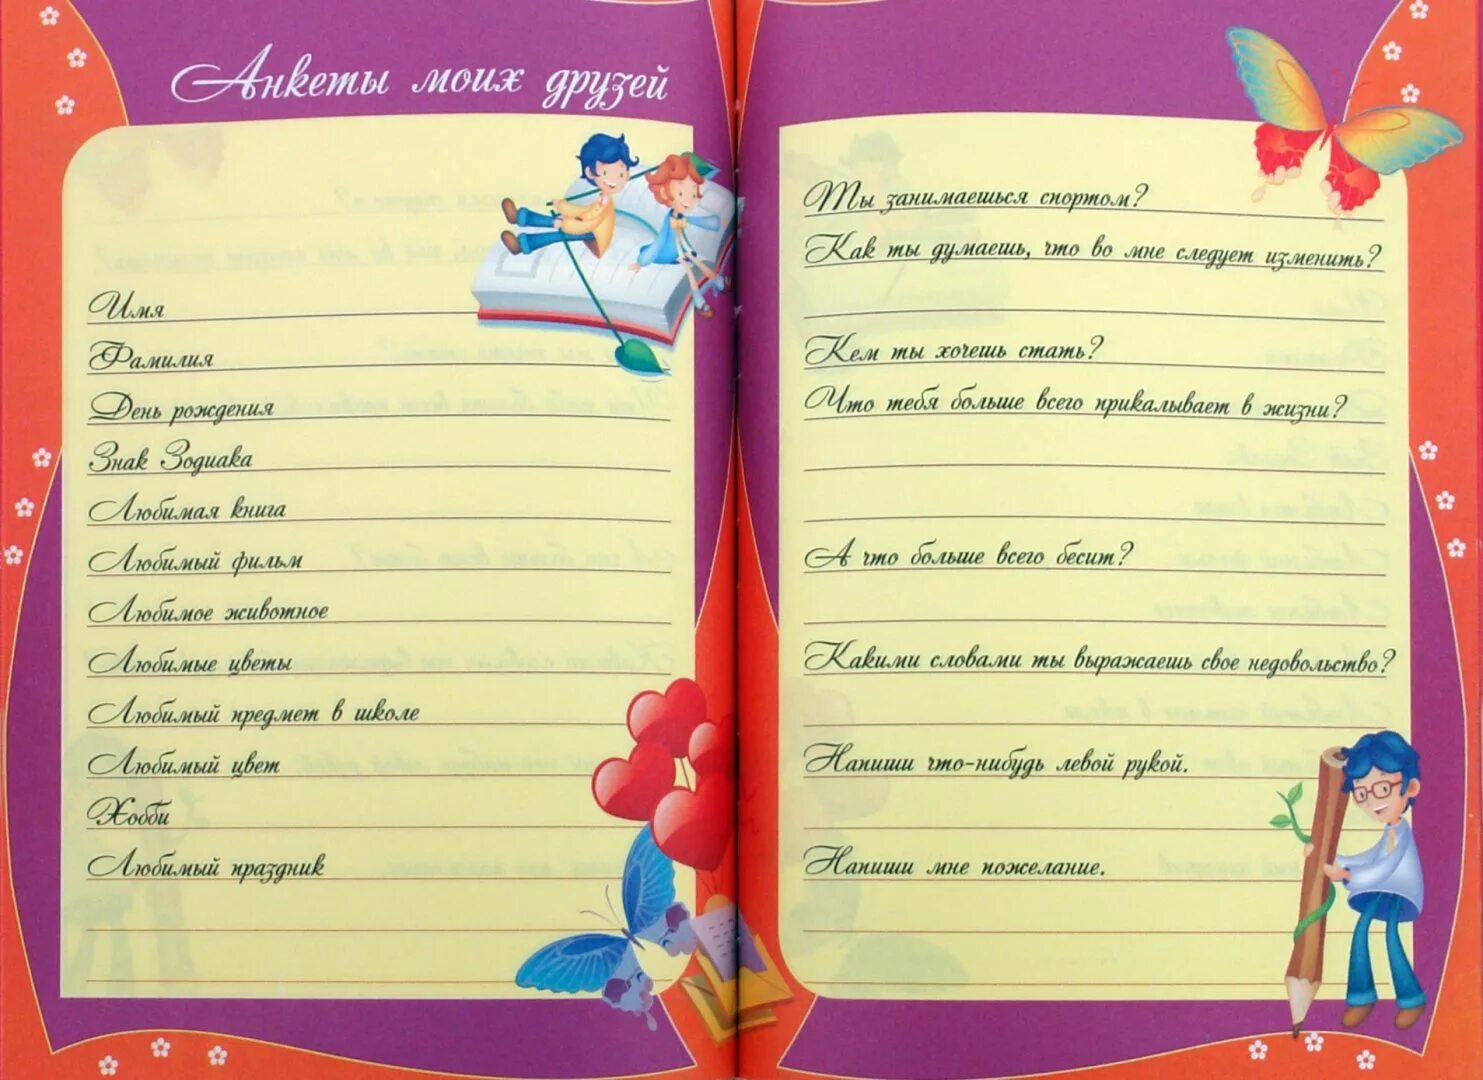 Анкеты моих друзей
Имя
Фамилия
День рождения
Знак Зодиака
Любимая книга
Любимый фильм
Любимое животное
Любимые цветы
Любимый предмет в школе
Любимый цвет
Хобби
Любимый праздник
Ты занимаешься спортом?
Как ты думаешь, что во мне следует изменить?
Кем ты хочешь стать?
Что тебя больше всего прикалывает в жизни?
А что больше всего бесит?
Какими словами ты выражаешь свое недовольство?
Напиши что-нибудь левой рукой.
Напиши мне пожелание.